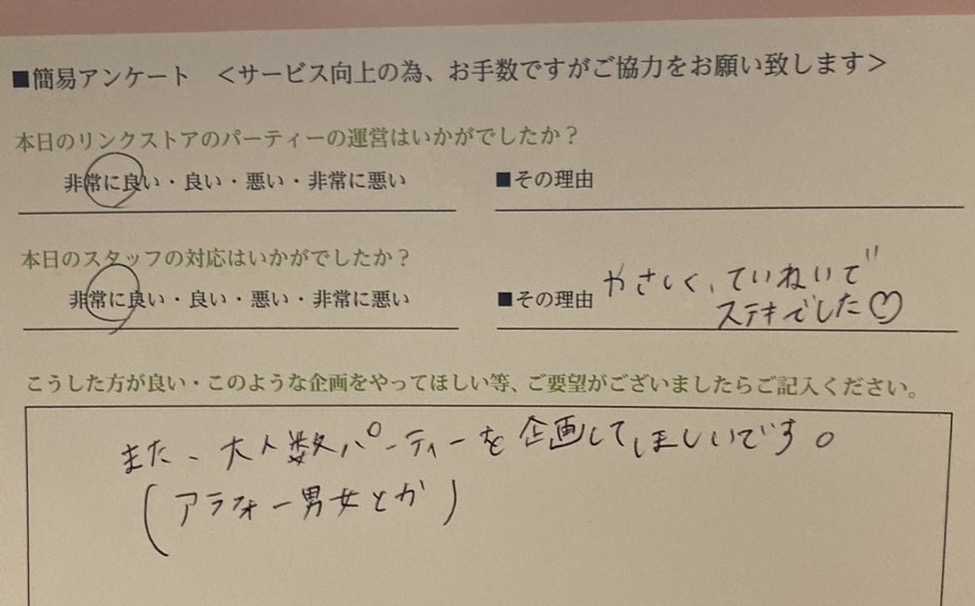 ■簡易アンケート ＜サービス向上の為、お手数ですがご協力をお願い致します＞
本日のリンクストアのパーティーの運営はいかがでしたか？
非常に良い・良い・悪い・非常に悪い ■その理由
本日のスタッフの対応はいかがでしたか？
やさしく、ていねいで
非常に良い・良い・悪い・非常に悪い ■その理由
ステキでした♡
こうした方が良い・このような企画をやってほしい等、ご要望がございましたらご記入ください。
また、大人数パーティーを企画してほしいです。
(アラフォー男女とか)